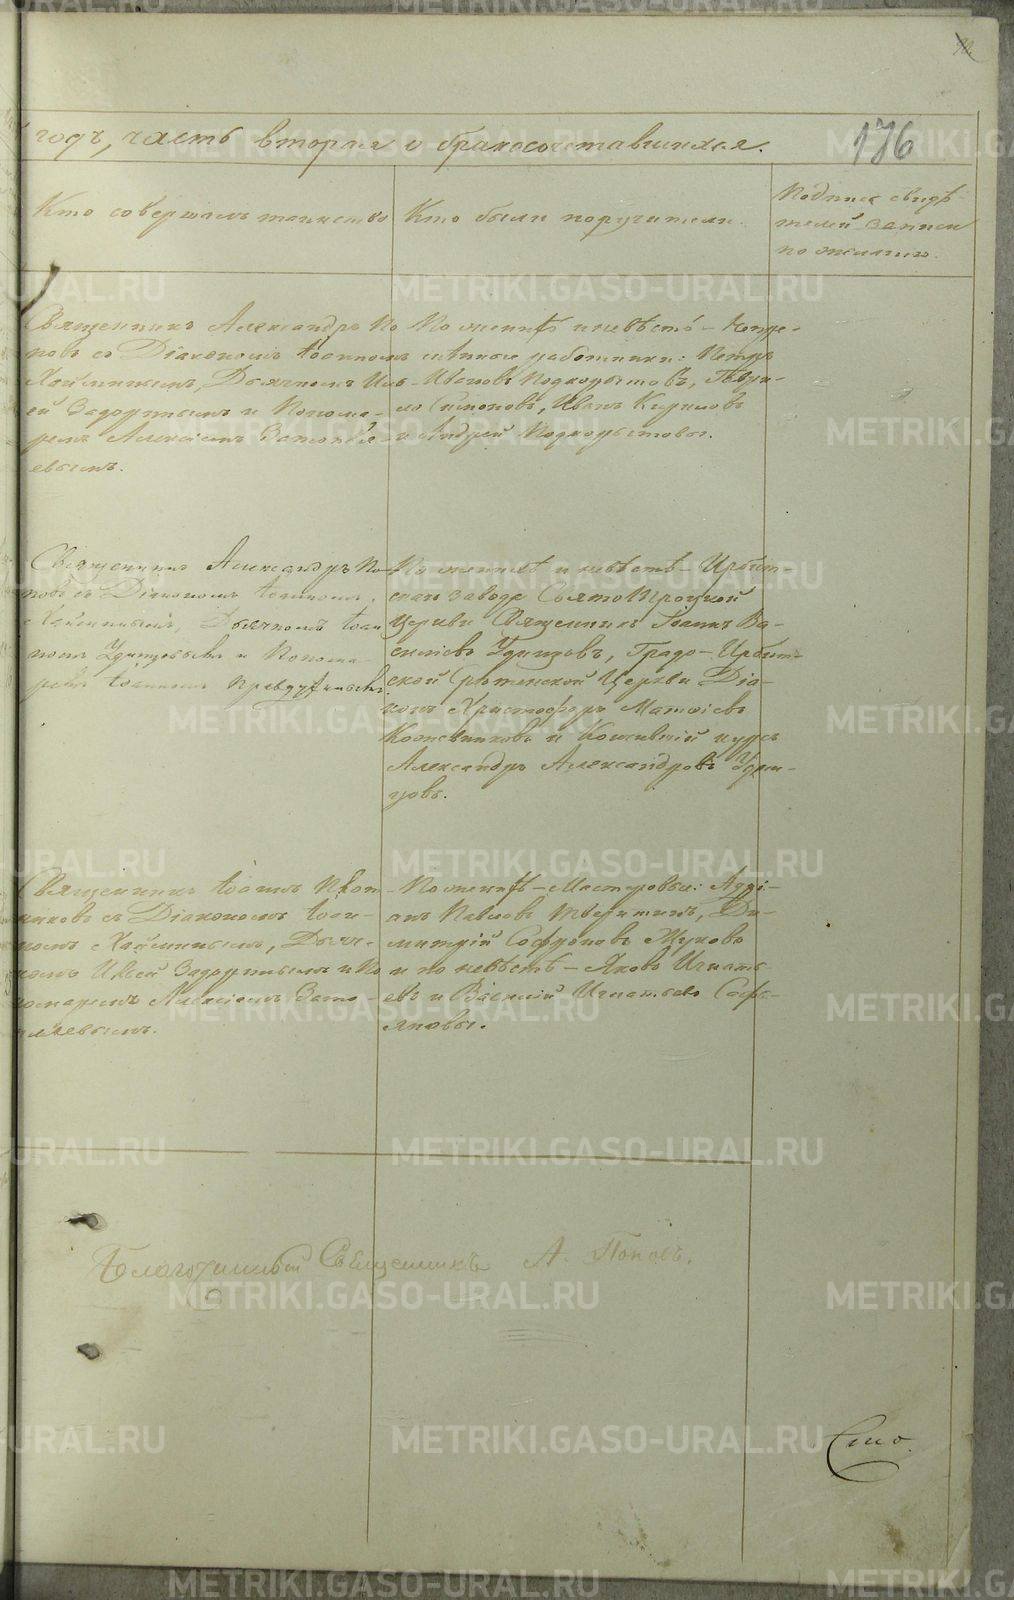 годъ, часть вторая о бракосочетавшихся.
176
Кто совершалъ таинство
Кто были поручители.
Подпись свидѣ-
телей записи
по желанію.
Священникъ Александръ По-
повъ съ Діакономъ Іоанномъ
Хайминымъ, Дьячкомъ Иль-
ей Задорнымъ и Понома-
ремъ Алексіемъ Затопля-
евымъ.
По женихѣ и невѣстѣ – Непре-
мѣнные работники: Петръ
Ивановъ Подкорытовъ, Гаври-
ло Симоновъ, Иванъ Кириловъ
и Андрей Подкорытовы.
Священникъ Александръ По-
повъ съ Діакономъ Іоанномъ
Хайминымъ, Дьячкомъ Іоан-
номъ Удинцовымъ и Понома-
ремъ Іоанномъ
По женихѣ и невѣстѣ – Ирбит-
скаго завода Свято Троцкой
Церкви Священникъ Іоаннъ Ва-
силіевъ Удинцовъ, Градо-Ирбит-
ской Срѣтенской Церкви Діа-
конъ Христофоръ Матѳіевъ
Кожевниковъ и Кончившій курсъ
Александръ Александровъ Удин-
цовъ.
Священникъ Іоаннъ Плот-
никовъ съ Діакономъ Іоан-
номъ Хайминымъ, Дьяч-
комъ Ильей Задорнымъ и По-
номаремъ Алексіемъ Зато-
пляевымъ.
По женихѣ – Мастеровые: Адрі-
анъ Павловъ Тверитинъ, Ди-
митрій Софроновъ Жуковъ
и по невѣстѣ – Яковъ Игнать-
евъ и Василій Игнатьевъ Софь-
яновы.
Благочинный Священникъ А. Поповъ.
Сто.
METRIKI.GASO-URAL.RU